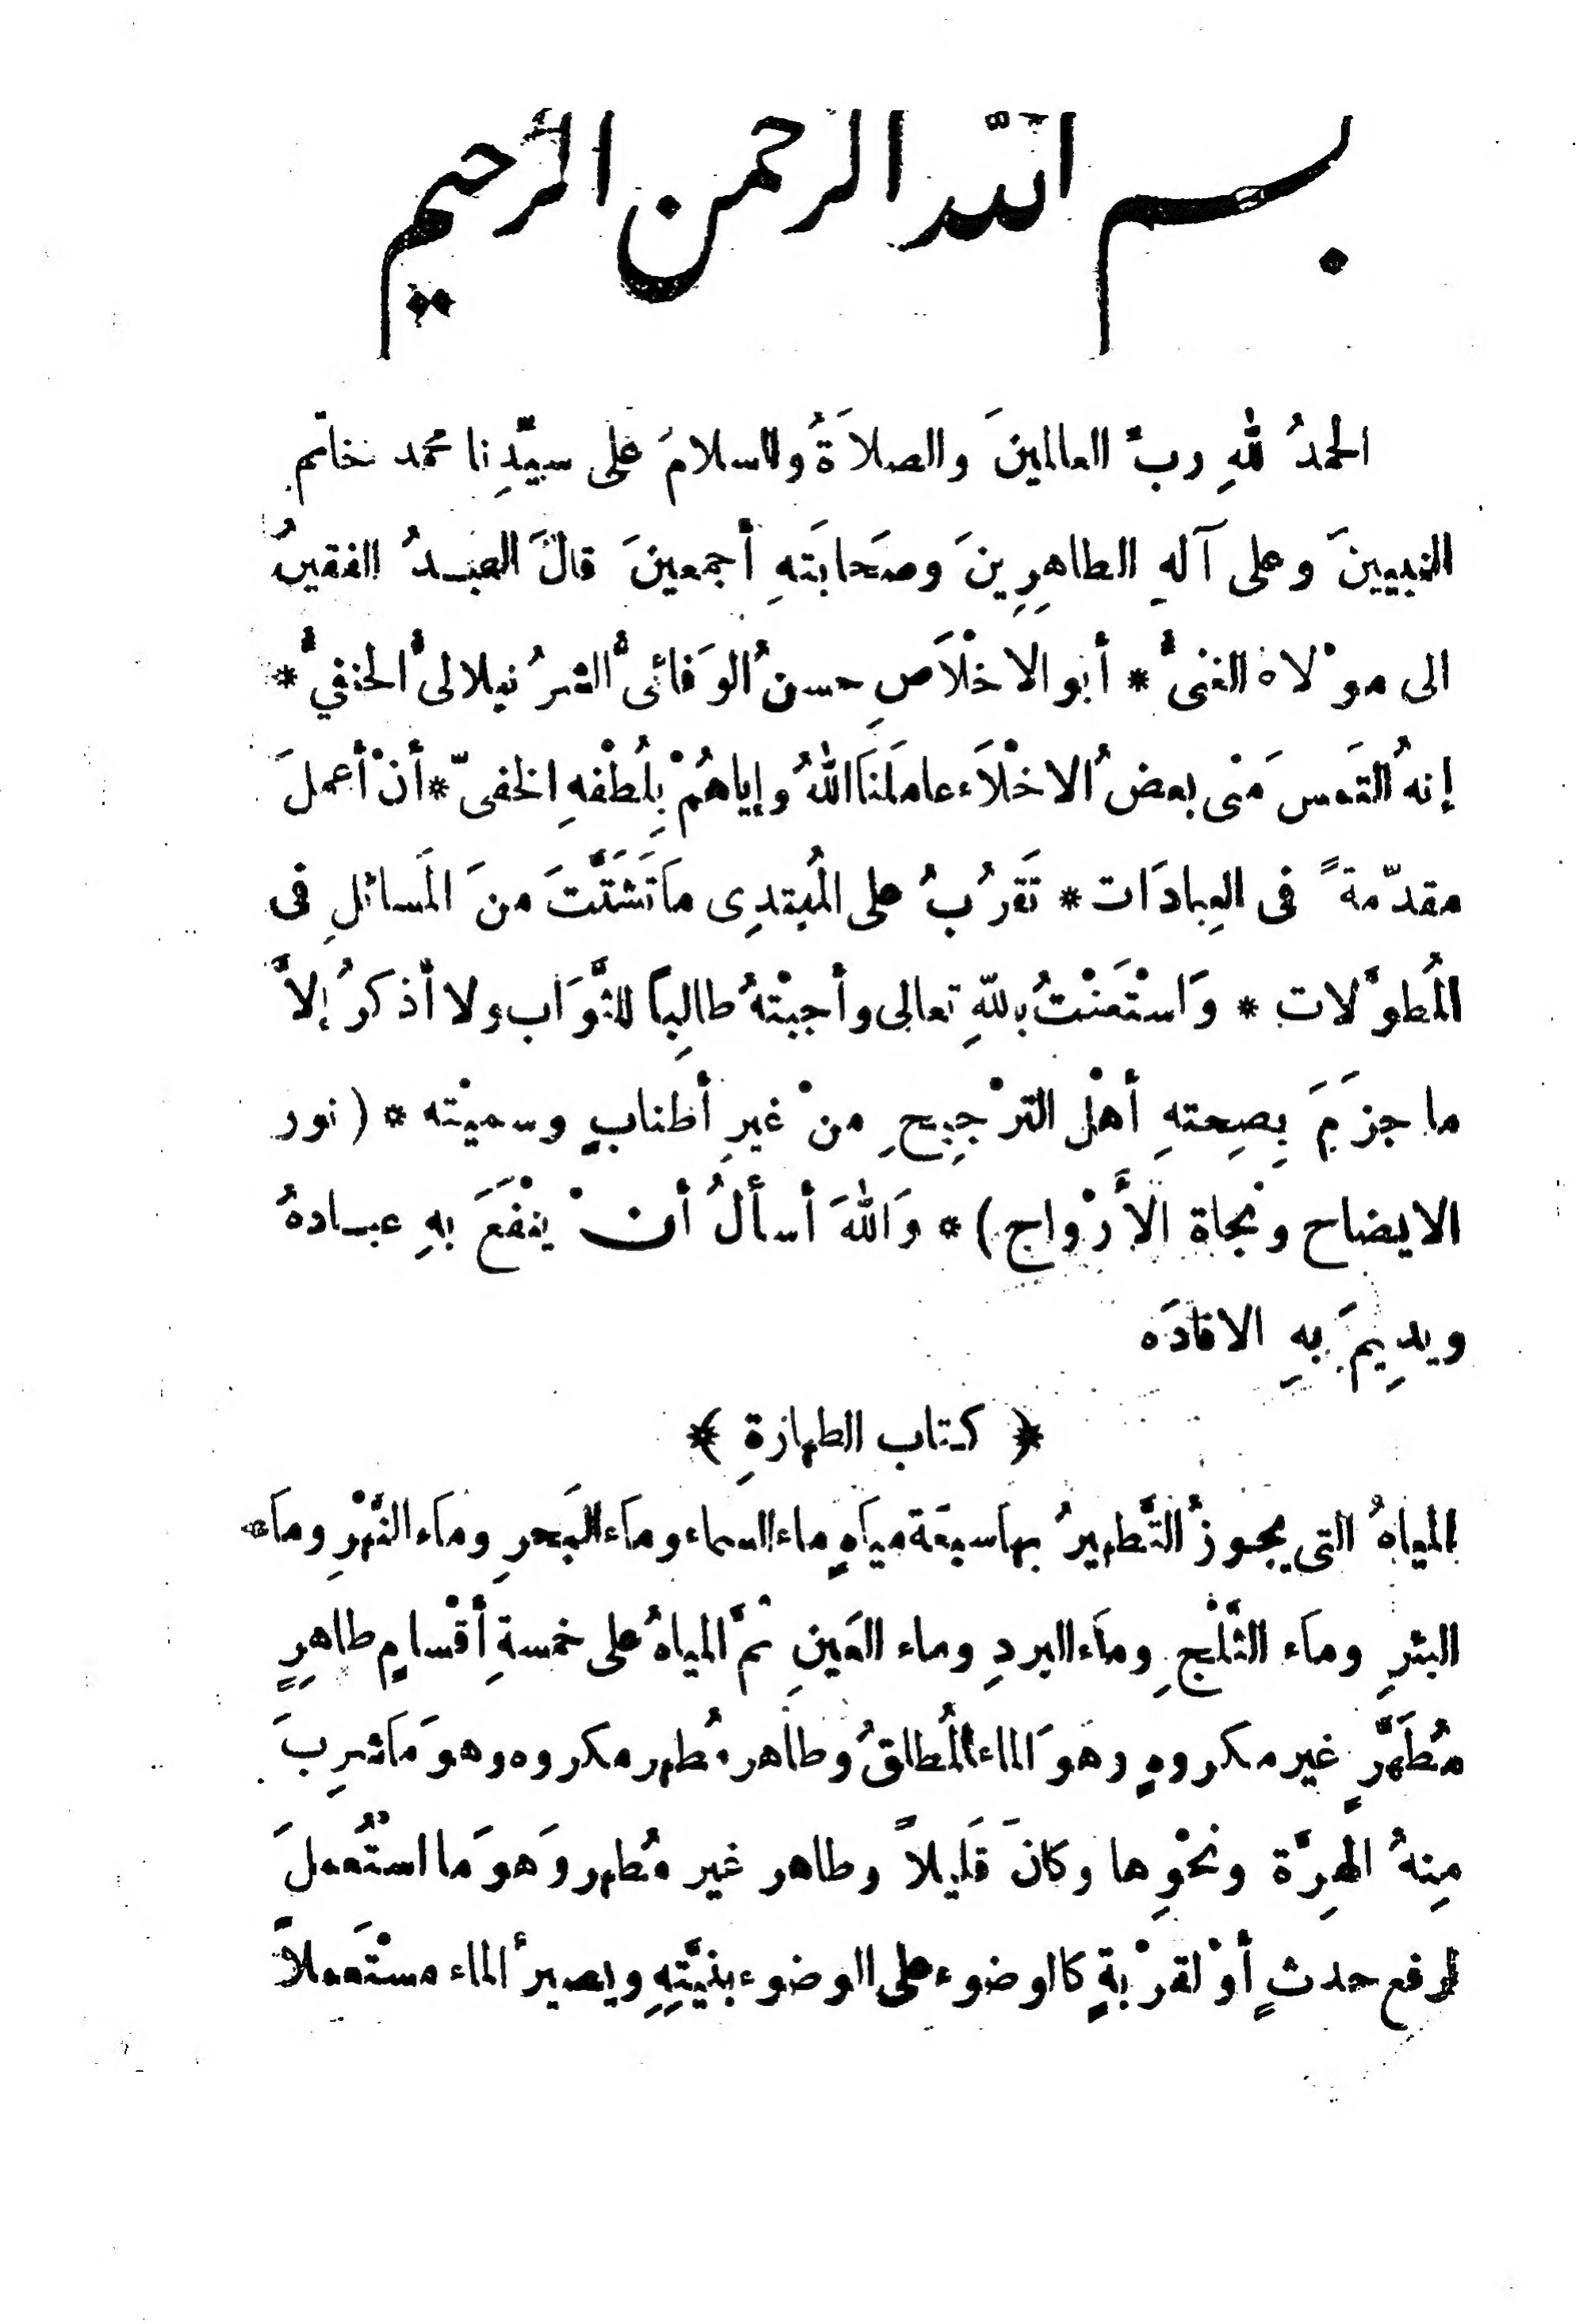 بسم الله الرحمن الرحيم
الحمدُ للهِ ربِّ العالمينَ والصلاَةُ والسلامُ على سيِّدِنا محمد خاتم
النبيينَ وعلى آلهِ الطاهرِينَ وصَحابَتهِ أجمعينَ قالَ العبـدُ الفقيرُ
الى موْلاهُ الغنىِّ * أبو الاخْلاَصِ حسنُ الوَفائىُّ الشرُنبلالىُّ الحنفيُّ *
إنهُ التمَسَ مَنى بعضُ الاخْلاَء عاملَنَا اللهُ وإياهُمْ بِلُطْفهِ الخفىّ * أنْ أعملَ
مقدّمةً فى العِبادَات * تَقرُبُ على المُبتدِى مَا تَشَتَّتَ منَ المَسائلِ فى
المُطوَّلات * وَاسْتَعَنْتُ باللهِ تعالى وأجبْتهُ طالِباً للثَّوَاب ولا أذكرُ إلاَّ
ما جزَمَ بِصِحتهِ أهْل الترْجِيحِ منْ غيرِ أطنابٍ وسميْته * (نور
الايضاح ونجاة الأَرْواح) * وَاللهَ أسألُ أنْ ينْفَعَ بهِ عبـادهُ
ويدِيمَ بهِ الافادَه
﴿ كتاب الطهارةِ ﴾
المياهُ التى يجـوزُ التَّطهيرُ بها سبعَة مياَهٍ ماء السماء ومَاء البَحرِ وماء النَّهْرِ ومَاء
البئرِ وماَء الثَّلْجِ ومَاء البردِ وماء العَينِ ثمَّ المياهُ على خمسةِ أقْسامٍ طاهرٍ
مُطَهَّرٍ غير مكروهٍ وهوَ الماء المُطلقُ وطاهر مُطهر مكروه وهوَ مَا شرِبَ
مِنهُ الهرَّة ونحْوِها وكانَ قَليلاً وطاهر غير مُطهر وَهوَ مَا استُعملَ
لرفع حدثٍ أوْ لقرْبةٍ كالوضوء على الوضوء بنيَّتِهِ ويصيرُ الماء مستَعملاً